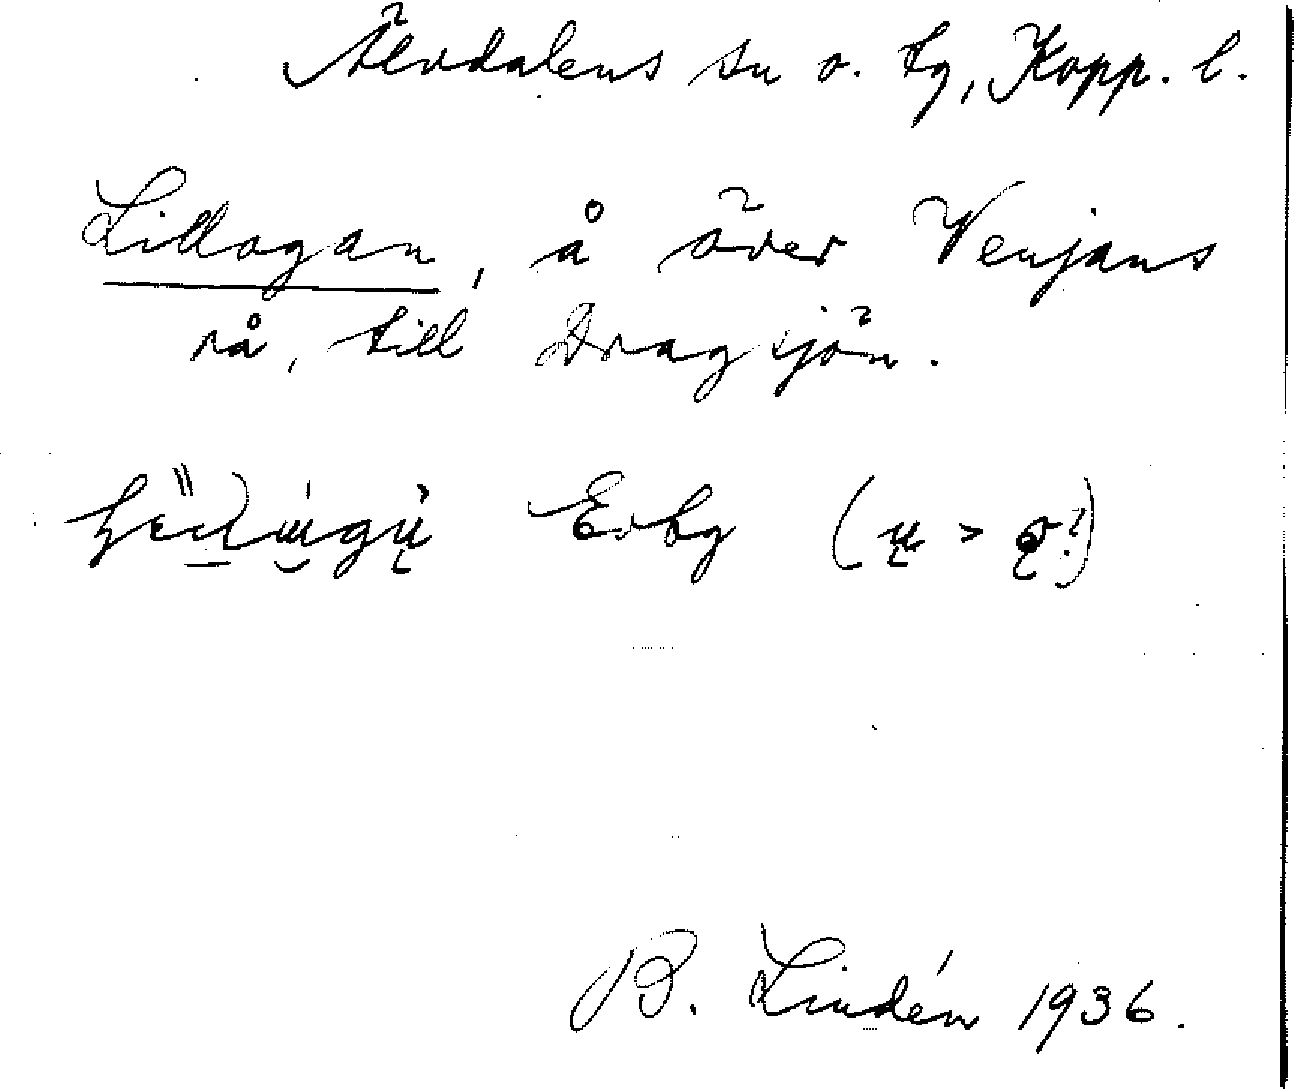 Älvdalens sn o. tg, Kopp. l.
Lillogan, å över Venjans
rå, till Dragsjön.
Evbg
B. Lindén 1936.